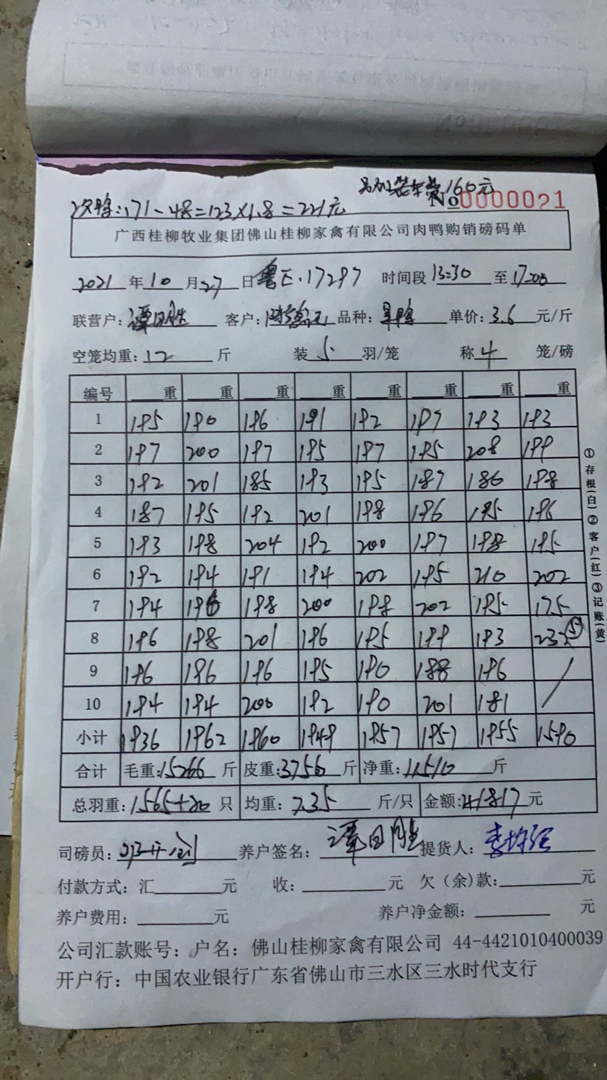 另加装车费160元
次鸭:171-48=123×1.8=221元
No 0000021
广西桂柳牧业集团佛山桂柳家禽有限公司肉鸭购销磅码单
2021年10月27日 鲁E·17297 时间段13:30至17:00
联营户:谭日胜 客户: 品种: 单价:3.6元/斤
空笼均重:12斤 装5羽/笼 称4笼/磅
编号 重 重 重 重 重 重 重 重
1 195 190 196 191 192 197 193 193
2 197 200 197 195 197 195 208 199
3 192 201 185 193 195 187 186 198
4 187 195 192 201 198 196 195 196
5 193 198 204 192 200 197 198 195
6 192 194 191 194 202 195 210 202
7 194 196 198 200 198 202 195 175
8 196 198 201 196 195 199 193 232 ⑤
9 196 196 196 195 190 188 196
10 194 194 200 192 190 201 181
小计 1936 1962 1960 1949 1957 1957 1955 1590
合计 毛重:15266斤 皮重:3756斤 净重:11510斤
总羽重:1565+20只 均重:7.35斤/只 金额:41817元
司磅员: 养户签名:谭日胜 提货人:
付款方式:汇 元 收: 元 欠(余)款: 元
养户费用: 元 养户净金额: 元
公司汇款账号:户名:佛山桂柳家禽有限公司 44-4421010400039
开户行:中国农业银行广东省佛山市三水区三水时代支行
①存根(白)②客户(红)③记账(黄)